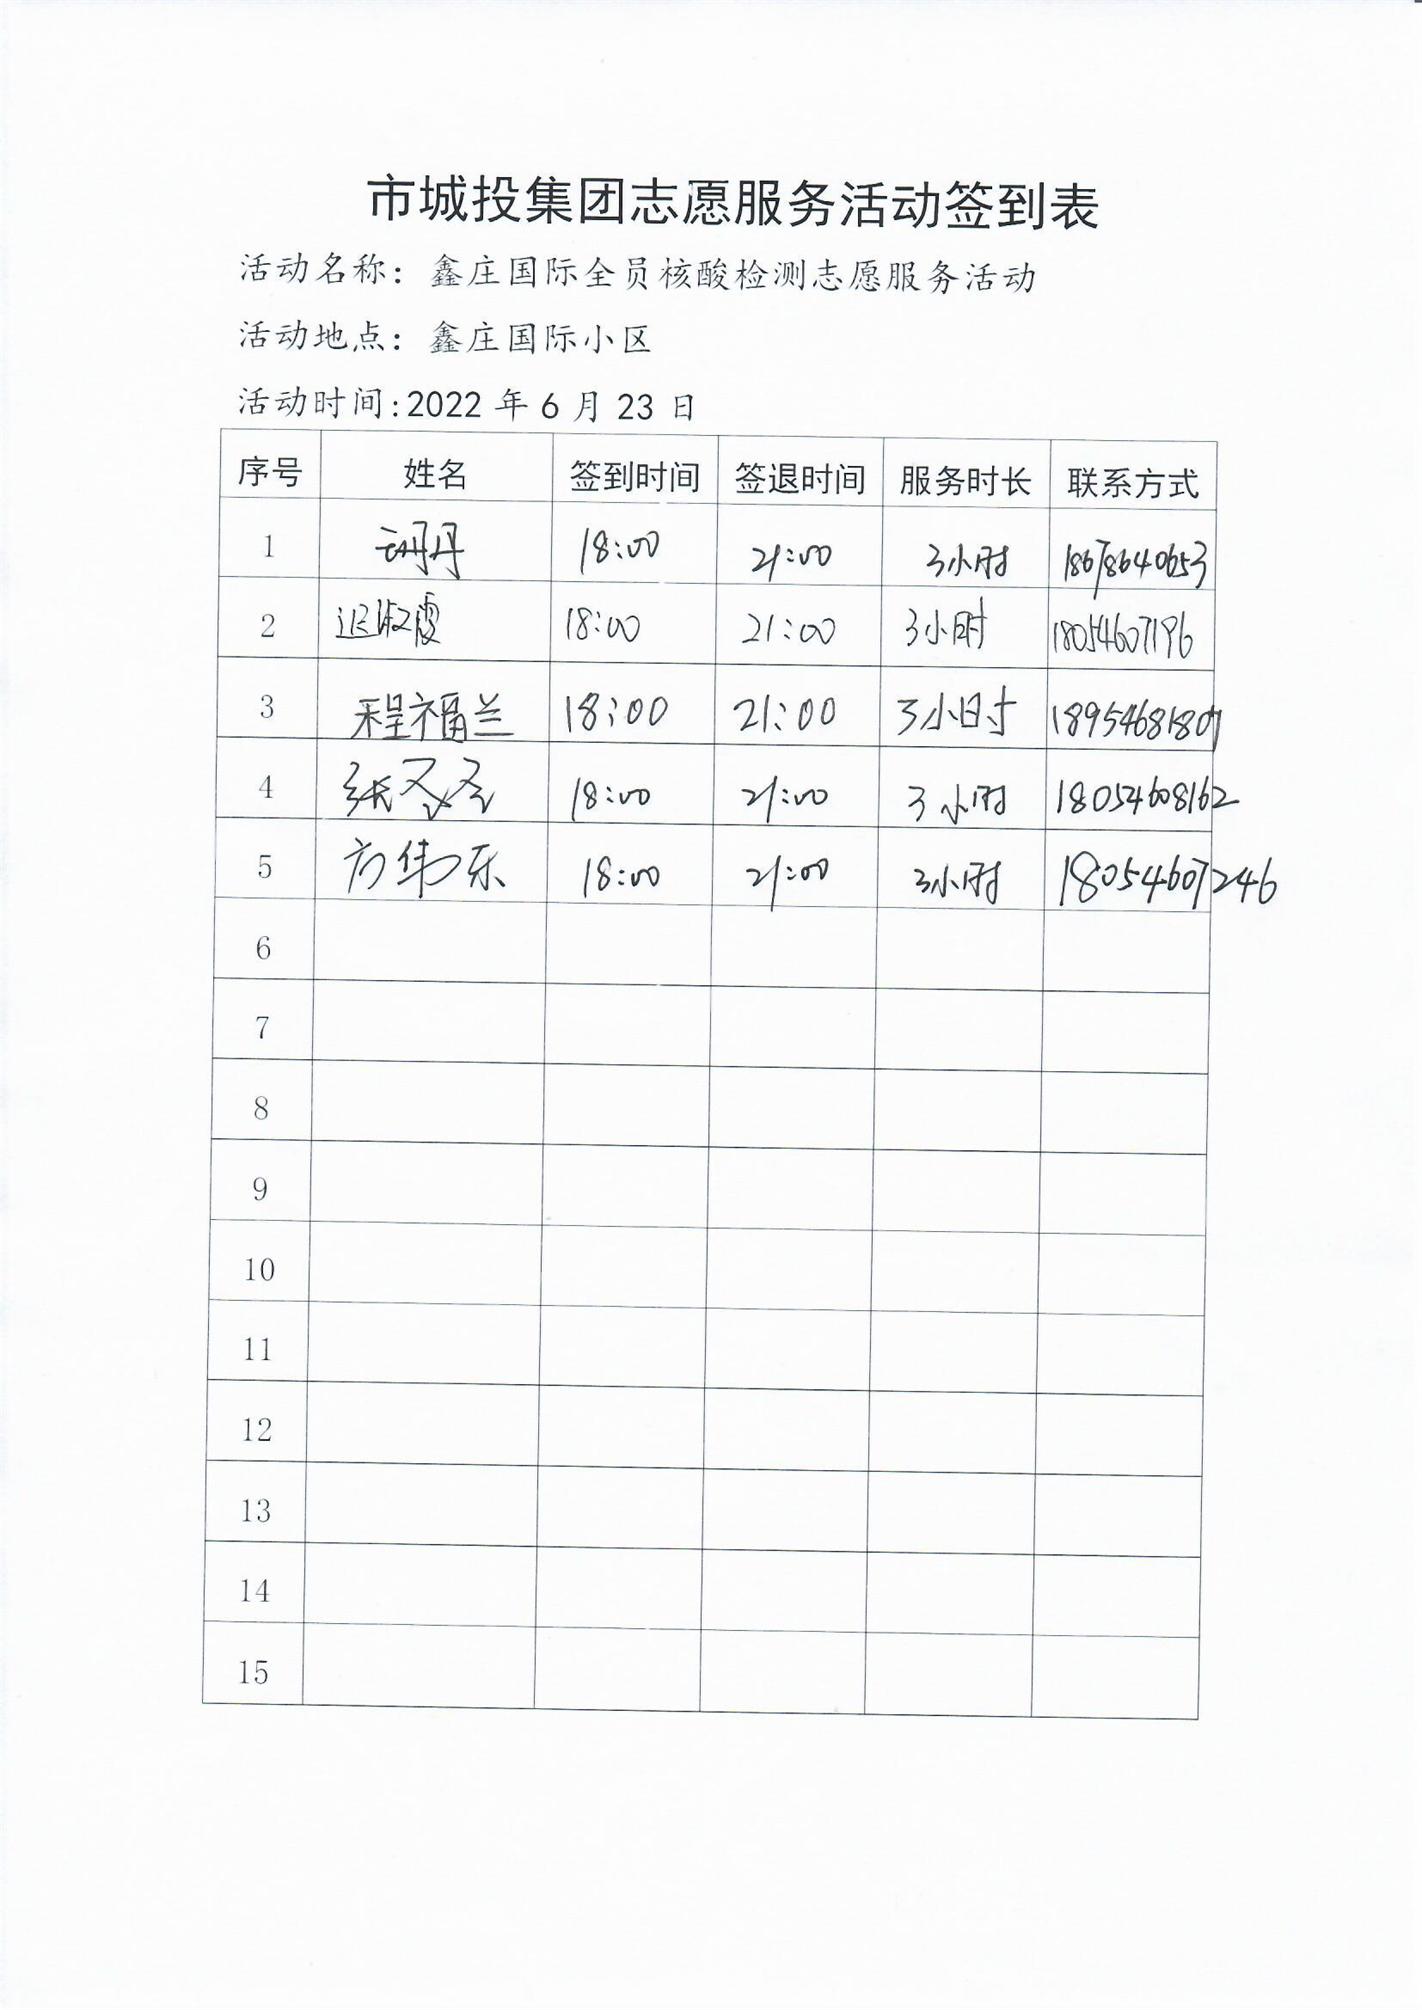 市城投集团志愿服务活动签到表
活动名称：鑫庄国际全员核酸检测志愿服务活动
活动地点：鑫庄国际小区
活动时间:2022 年 6 月 23 日
序号 姓名 签到时间 签退时间 服务时长 联系方式
1 丹丹 18:00 21:00 3小时 18678640653
2 淑霞 18:00 21:00 3小时 18054607196
3 程福兰 18:00 21:00 3小时 18954681807
4 张 18:00 21:00 3小时 18054608162
5 方伟东 18:00 21:00 3小时 18054607246
6
7
8
9
10
11
12
13
14
15